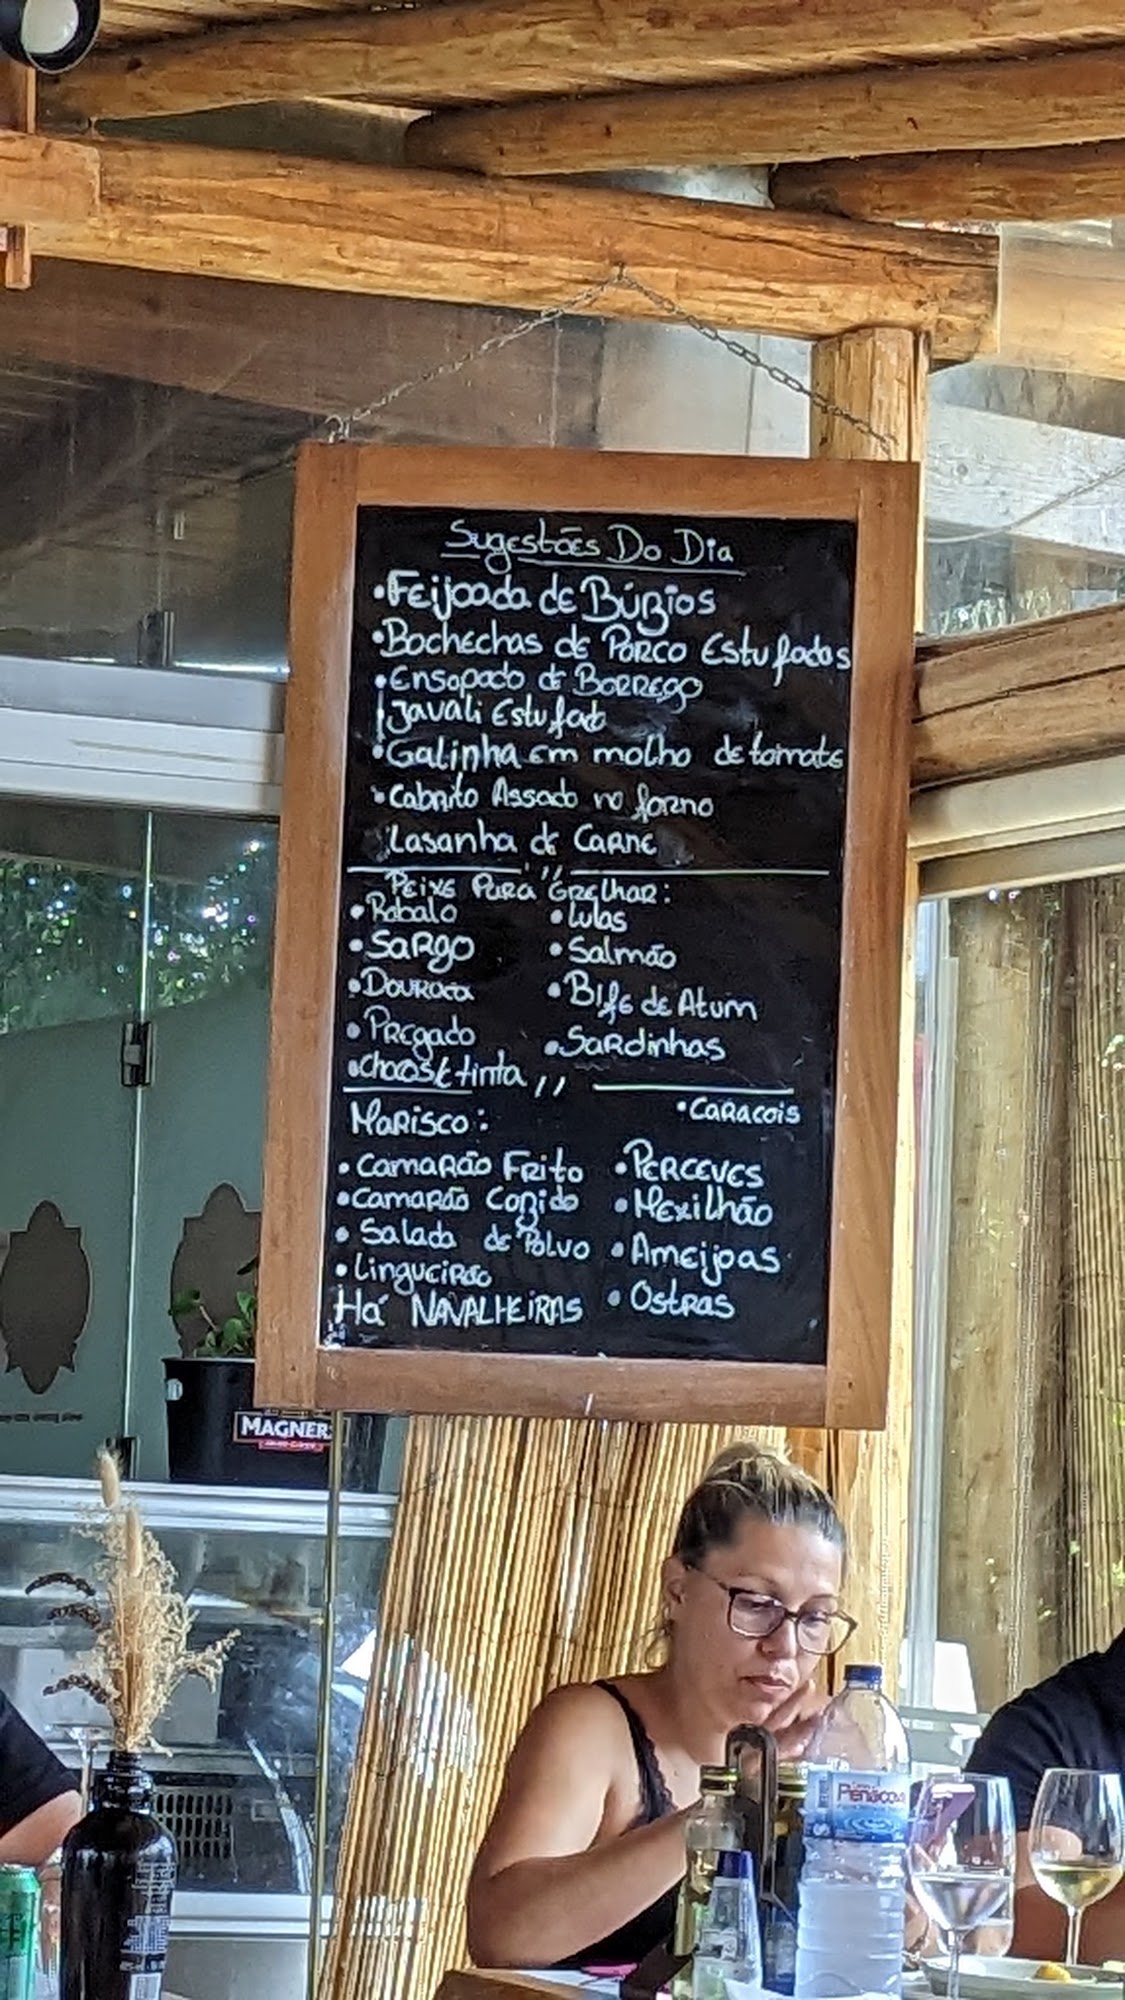 Sugestões Do Dia
• Feijoada de Búzios
• Bochechas de Porco Estufados
• Ensopado de Borrego
Javali Estufado
• Galinha em molho de tomate
• Cabrito Assado no forno
Lasanha de Carne
Peixe Para Grelhar:
• Robalo
• Sargo
• Dourada
• Pregado
• Chocos C/ tinta
• Lulas
• Salmão
• Bife de Atum
• Sardinhas
Marisco:
• Camarão Frito
• Camarão Cozido
• Salada de Polvo
• Lingueirão
Há NAVALHEIRAS
• Caracois
• PERCEVES
• Mexilhão
• Ameijoas
• Ostras
MAGNERS
Penacova